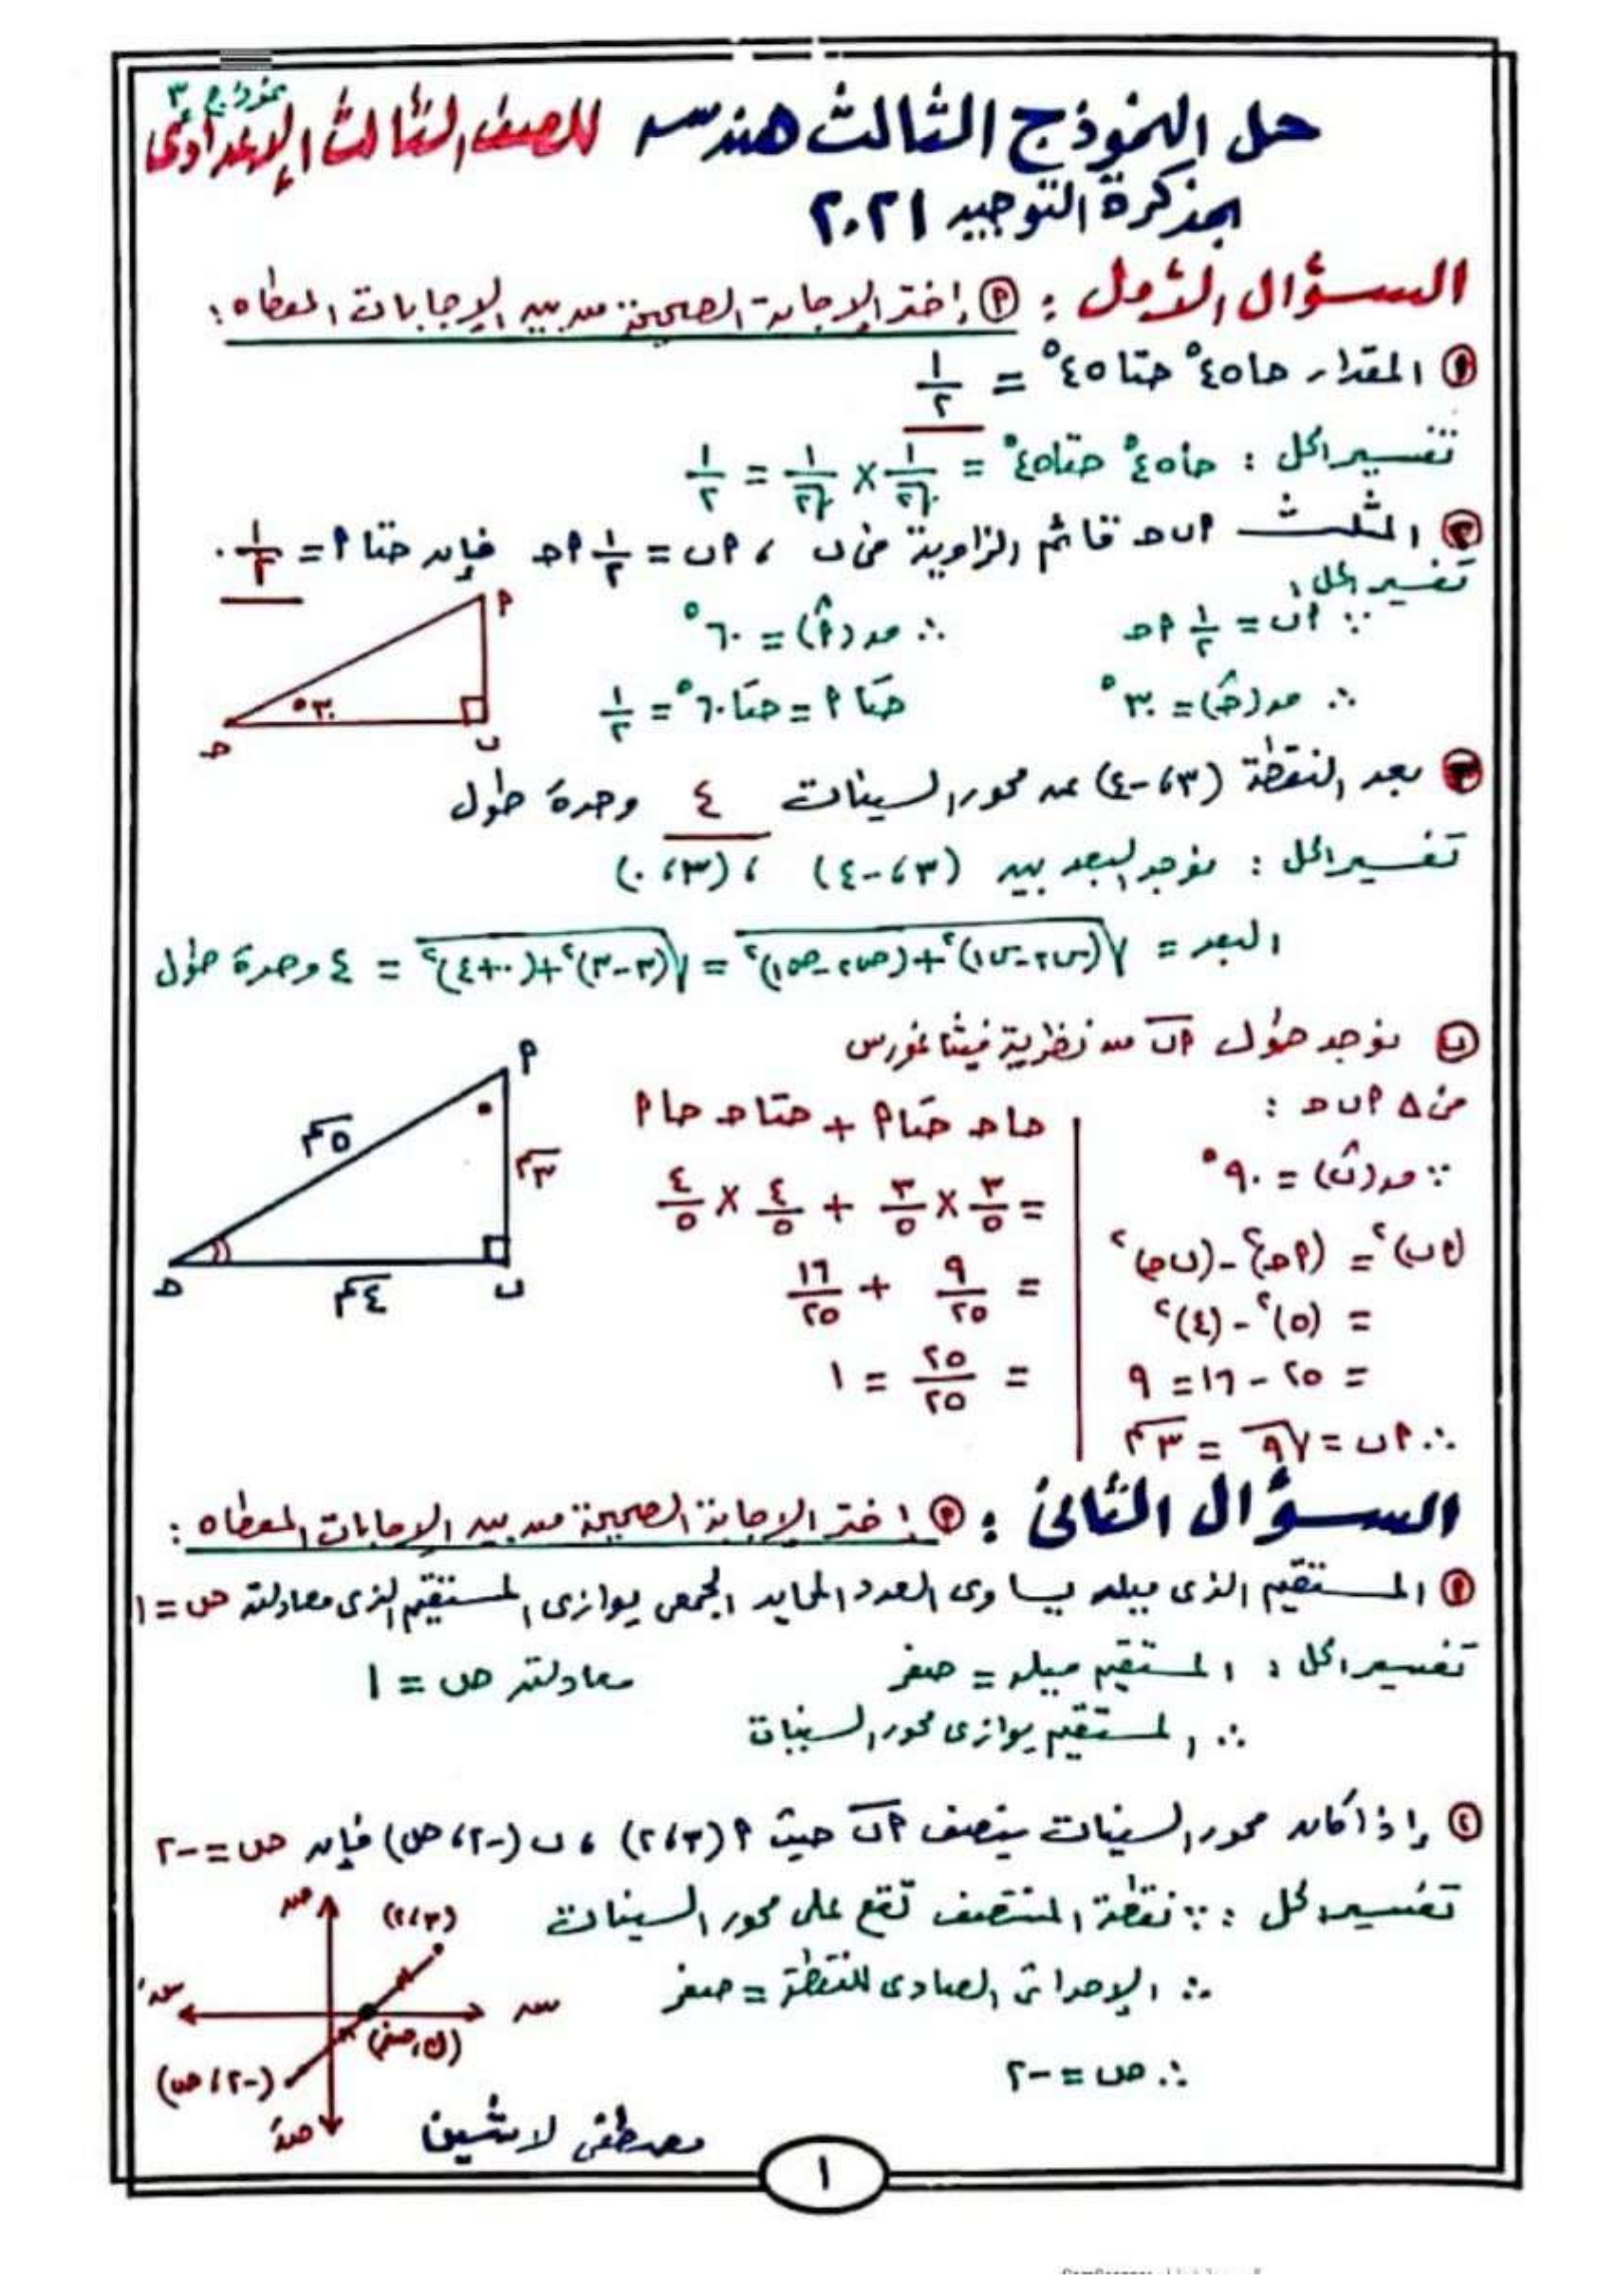 نموذج ٣
حل النموذج الثالث هندسه للصف الثالث الإعدادى
بمذكرة التوجيه ٢٠٢١
السؤال الأول : (أ) إختر الإجابة الصحيحة من بين الإجابات المعطاه :
(١) المقدار حا ٤٥° حتا ٤٥° = ١/٢
تفسير الحل : حا ٤٥° حتا ٤٥° = ١/√٢ × ١/√٢ = ١/٢
(٢) المثلث أ ب حـ قائم الزاوية فى ب ، أ ب = ١/٢ أ حـ فإن حتا أ = ١/٢ .
تفسير الحل :
∵ أ ب = ١/٢ أ حـ ∴ ص (أ^) = ٦٠°
∴ ص (حـ^) = ٣٠° حتا أ = حتا ٦٠° = ١/٢
أ
٣٠°
حـ ب
(٣) بعد النقطة (٣، -٤) عن محور السينات ٤ وحدة طول
تفسير الحل : نوجد البعد بين (٣، -٤) ، (٣، ٠)
البعد = √((س٢ - س١)² + (ص٢ - ص١)²) = √((٣-٣)² + (٠+٤)²) = ٤ وحدة طول
(ب) نوجد طول أ ب من نظرية فيثاغورس
من Δ أ ب حـ :
∵ ص (ب^) = ٩٠°
(أ ب)² = (أ حـ)² - (ب حـ)²
= (٥)² - (٤)²
= ٢٥ - ١٦ = ٩
∴ أ ب = √٩ = ٣سم
حا حـ حتا أ + حتا حـ حا أ
= ٣/٥ × ٣/٥ + ٤/٥ × ٤/٥
= ٩/٢٥ + ١٦/٢٥
= ٢٥/٢٥ = ١
أ
٥سم
٣سم
حـ ب
٤سم
السؤال الثانى : (أ) إختر الإجابة الصحيحة من بين الإجابات المعطاه :
(١) المستقيم الذى ميله يساوى العدد المحايد الجمعى يوازى المستقيم الذى معادلته ص = ١
تفسير الحل : المستقيم ميله = صفر معادلته ص = ١
∴ المستقيم يوازى محور السينات
(٢) إذا كان محور السينات ينصف أ ب حيث أ (٣، ٢) ، ب (-٢، ص) فإن ص = -٢
تفسير الحل : ∵ نقطة المنتصف تقع على محور السينات
∴ الإحداثى الصادى للنقطة = صفر
∴ ص = -٢
ص
(٣، ٢)
سَ س
(ك، صفر)
(-٢، ص)
صَ
مصطفى لاشين
١